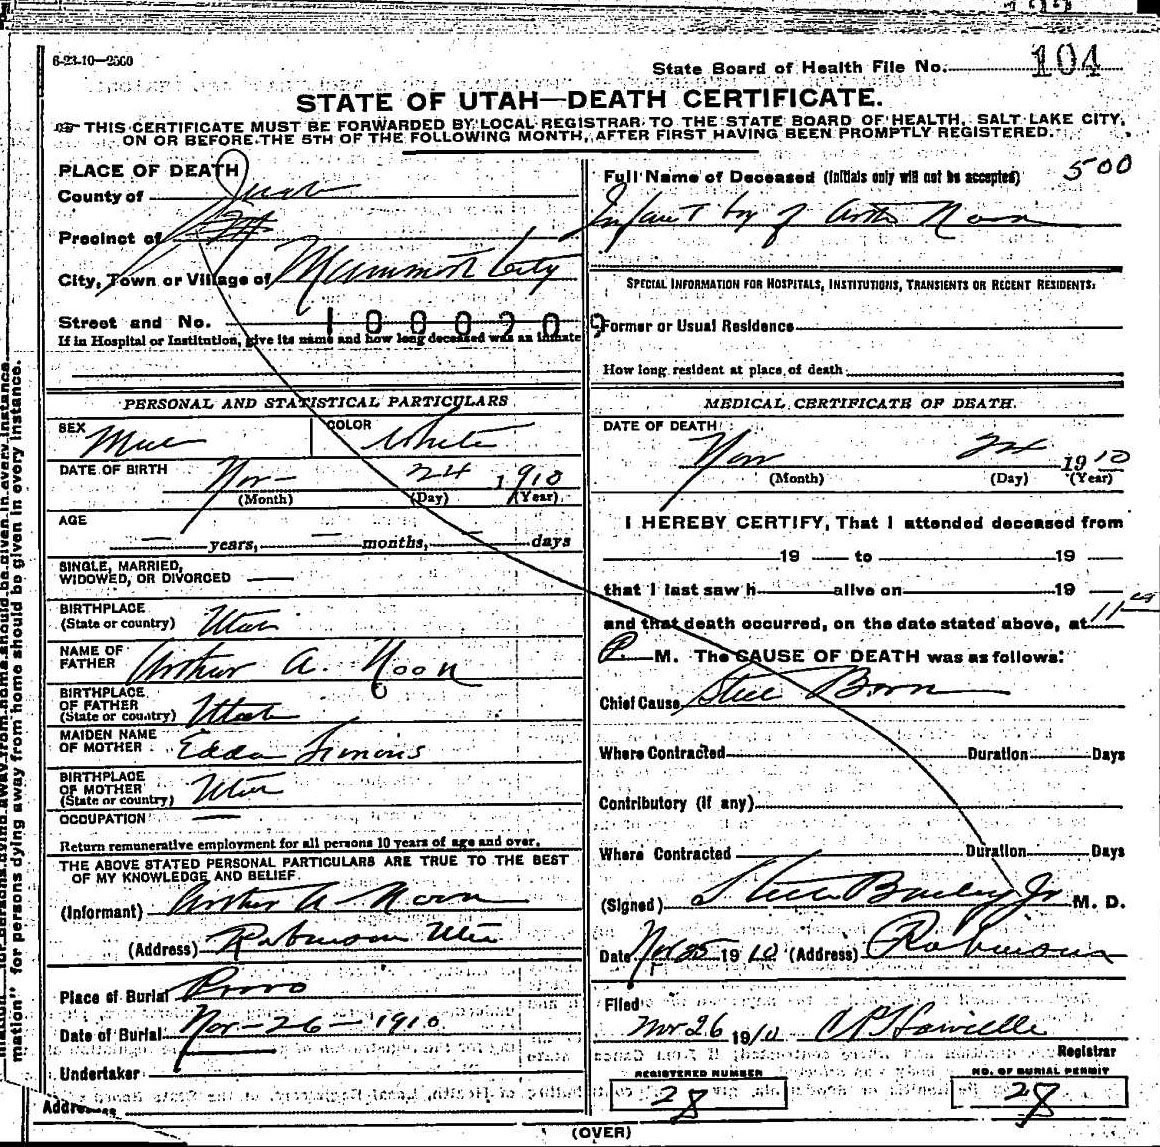 6-23-10—2500
State Board of Health File No. 104
STATE OF UTAH—DEATH CERTIFICATE.
THIS CERTIFICATE MUST BE FORWARDED BY LOCAL REGISTRAR TO THE STATE BOARD OF HEALTH, SALT LAKE CITY,
ON OR BEFORE THE 5TH OF THE FOLLOWING MONTH, AFTER FIRST HAVING BEEN PROMPTLY REGISTERED.
PLACE OF DEATH
County of Juab
Precinct of
City, Town or Village of Mammoth City
Street and No.
1000209
If in Hospital or Institution, give its name and how long deceased was an inmate
500
Full Name of Deceased (Initials only will not be accepted)
Infant boy of Arthur Noon
SPECIAL INFORMATION FOR HOSPITALS, INSTITUTIONS, TRANSIENTS OR RECENT RESIDENTS:
Former or Usual Residence
How long resident at place of death
PERSONAL AND STATISTICAL PARTICULARS
SEX Male COLOR White
DATE OF BIRTH Nov- 24 1910
(Month) (Day) (Year)
AGE
— years, — months, — days
SINGLE, MARRIED,
WIDOWED, OR DIVORCED —
BIRTHPLACE
(State or country) Utah
NAME OF
FATHER Arthur A. Noon
BIRTHPLACE
OF FATHER
(State or country) Utah
MAIDEN NAME
OF MOTHER Edda Simons
BIRTHPLACE
OF MOTHER
(State or country) Utah
OCCUPATION —
Return remunerative employment for all persons 10 years of age and over.
THE ABOVE STATED PERSONAL PARTICULARS ARE TRUE TO THE BEST
OF MY KNOWLEDGE AND BELIEF.
(Informant) Arthur A Noon
(Address) Robinson Utah
Place of Burial Provo
Date of Burial Nov-26-1910
Undertaker
Address
MEDICAL CERTIFICATE OF DEATH.
DATE OF DEATH:
Nov 24 1910
(Month) (Day) (Year)
I HEREBY CERTIFY, That I attended deceased from
19 — to 19 —
that I last saw h alive on 19 —
and that death occurred, on the date stated above, at 11
P. M. The CAUSE OF DEATH was as follows:
Chief Cause Still Born
Where Contracted Duration Days
Contributory (if any)
Where Contracted Duration Days
(Signed) Steele Bailey Jr M. D.
Date Nov 25 1910 (Address) Robinson
Filed
Nov 26 1910
Registrar
REGISTERED NUMBER
28
NO. OF BURIAL PERMIT
28
(OVER)
for persons dying away from home should be given in every instance.